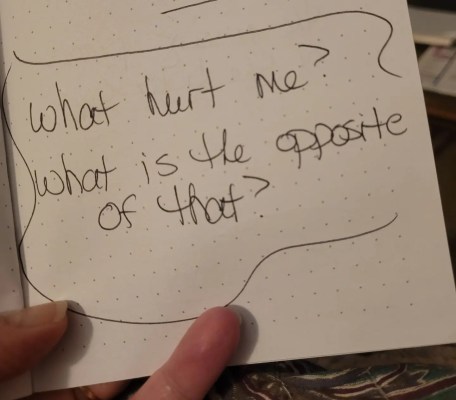 What hurt me?
What is the opposite
of that?